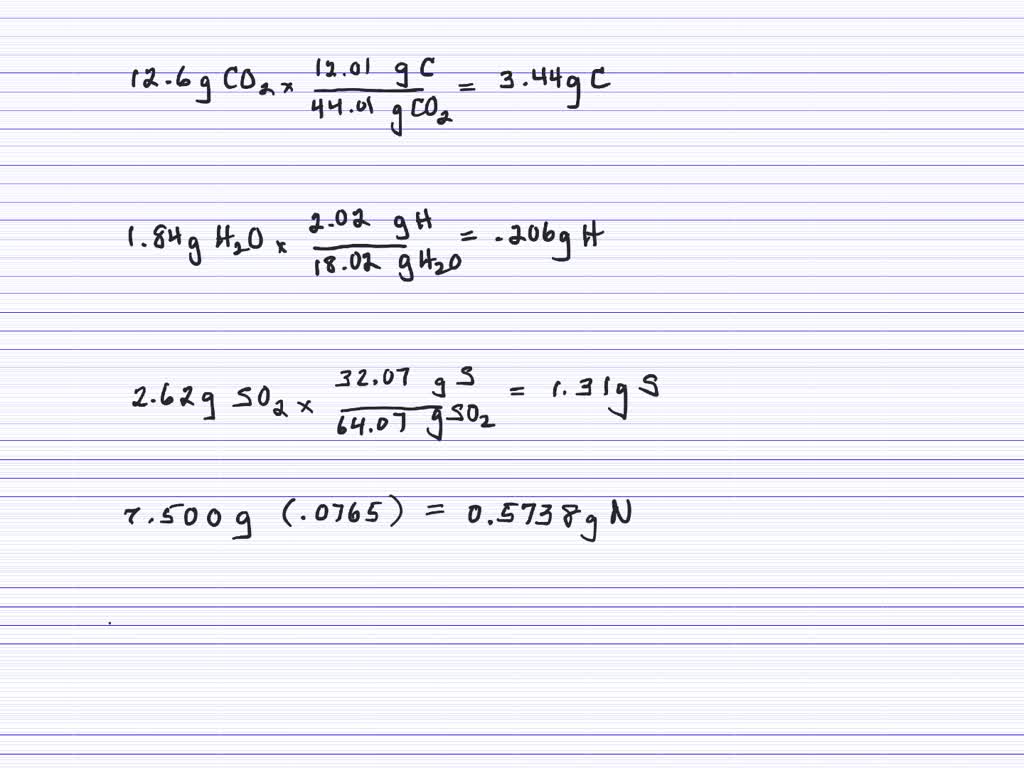 12.6g CO₂ × 12.01 g C / 44.01 g CO₂ = 3.44g C
1.84g H₂O × 2.02 g H / 18.02 g H₂O = .206g H
2.62g SO₂ × 32.07 g S / 64.07 g SO₂ = 1.31g S
7.500g (.0765) = 0.5738g N